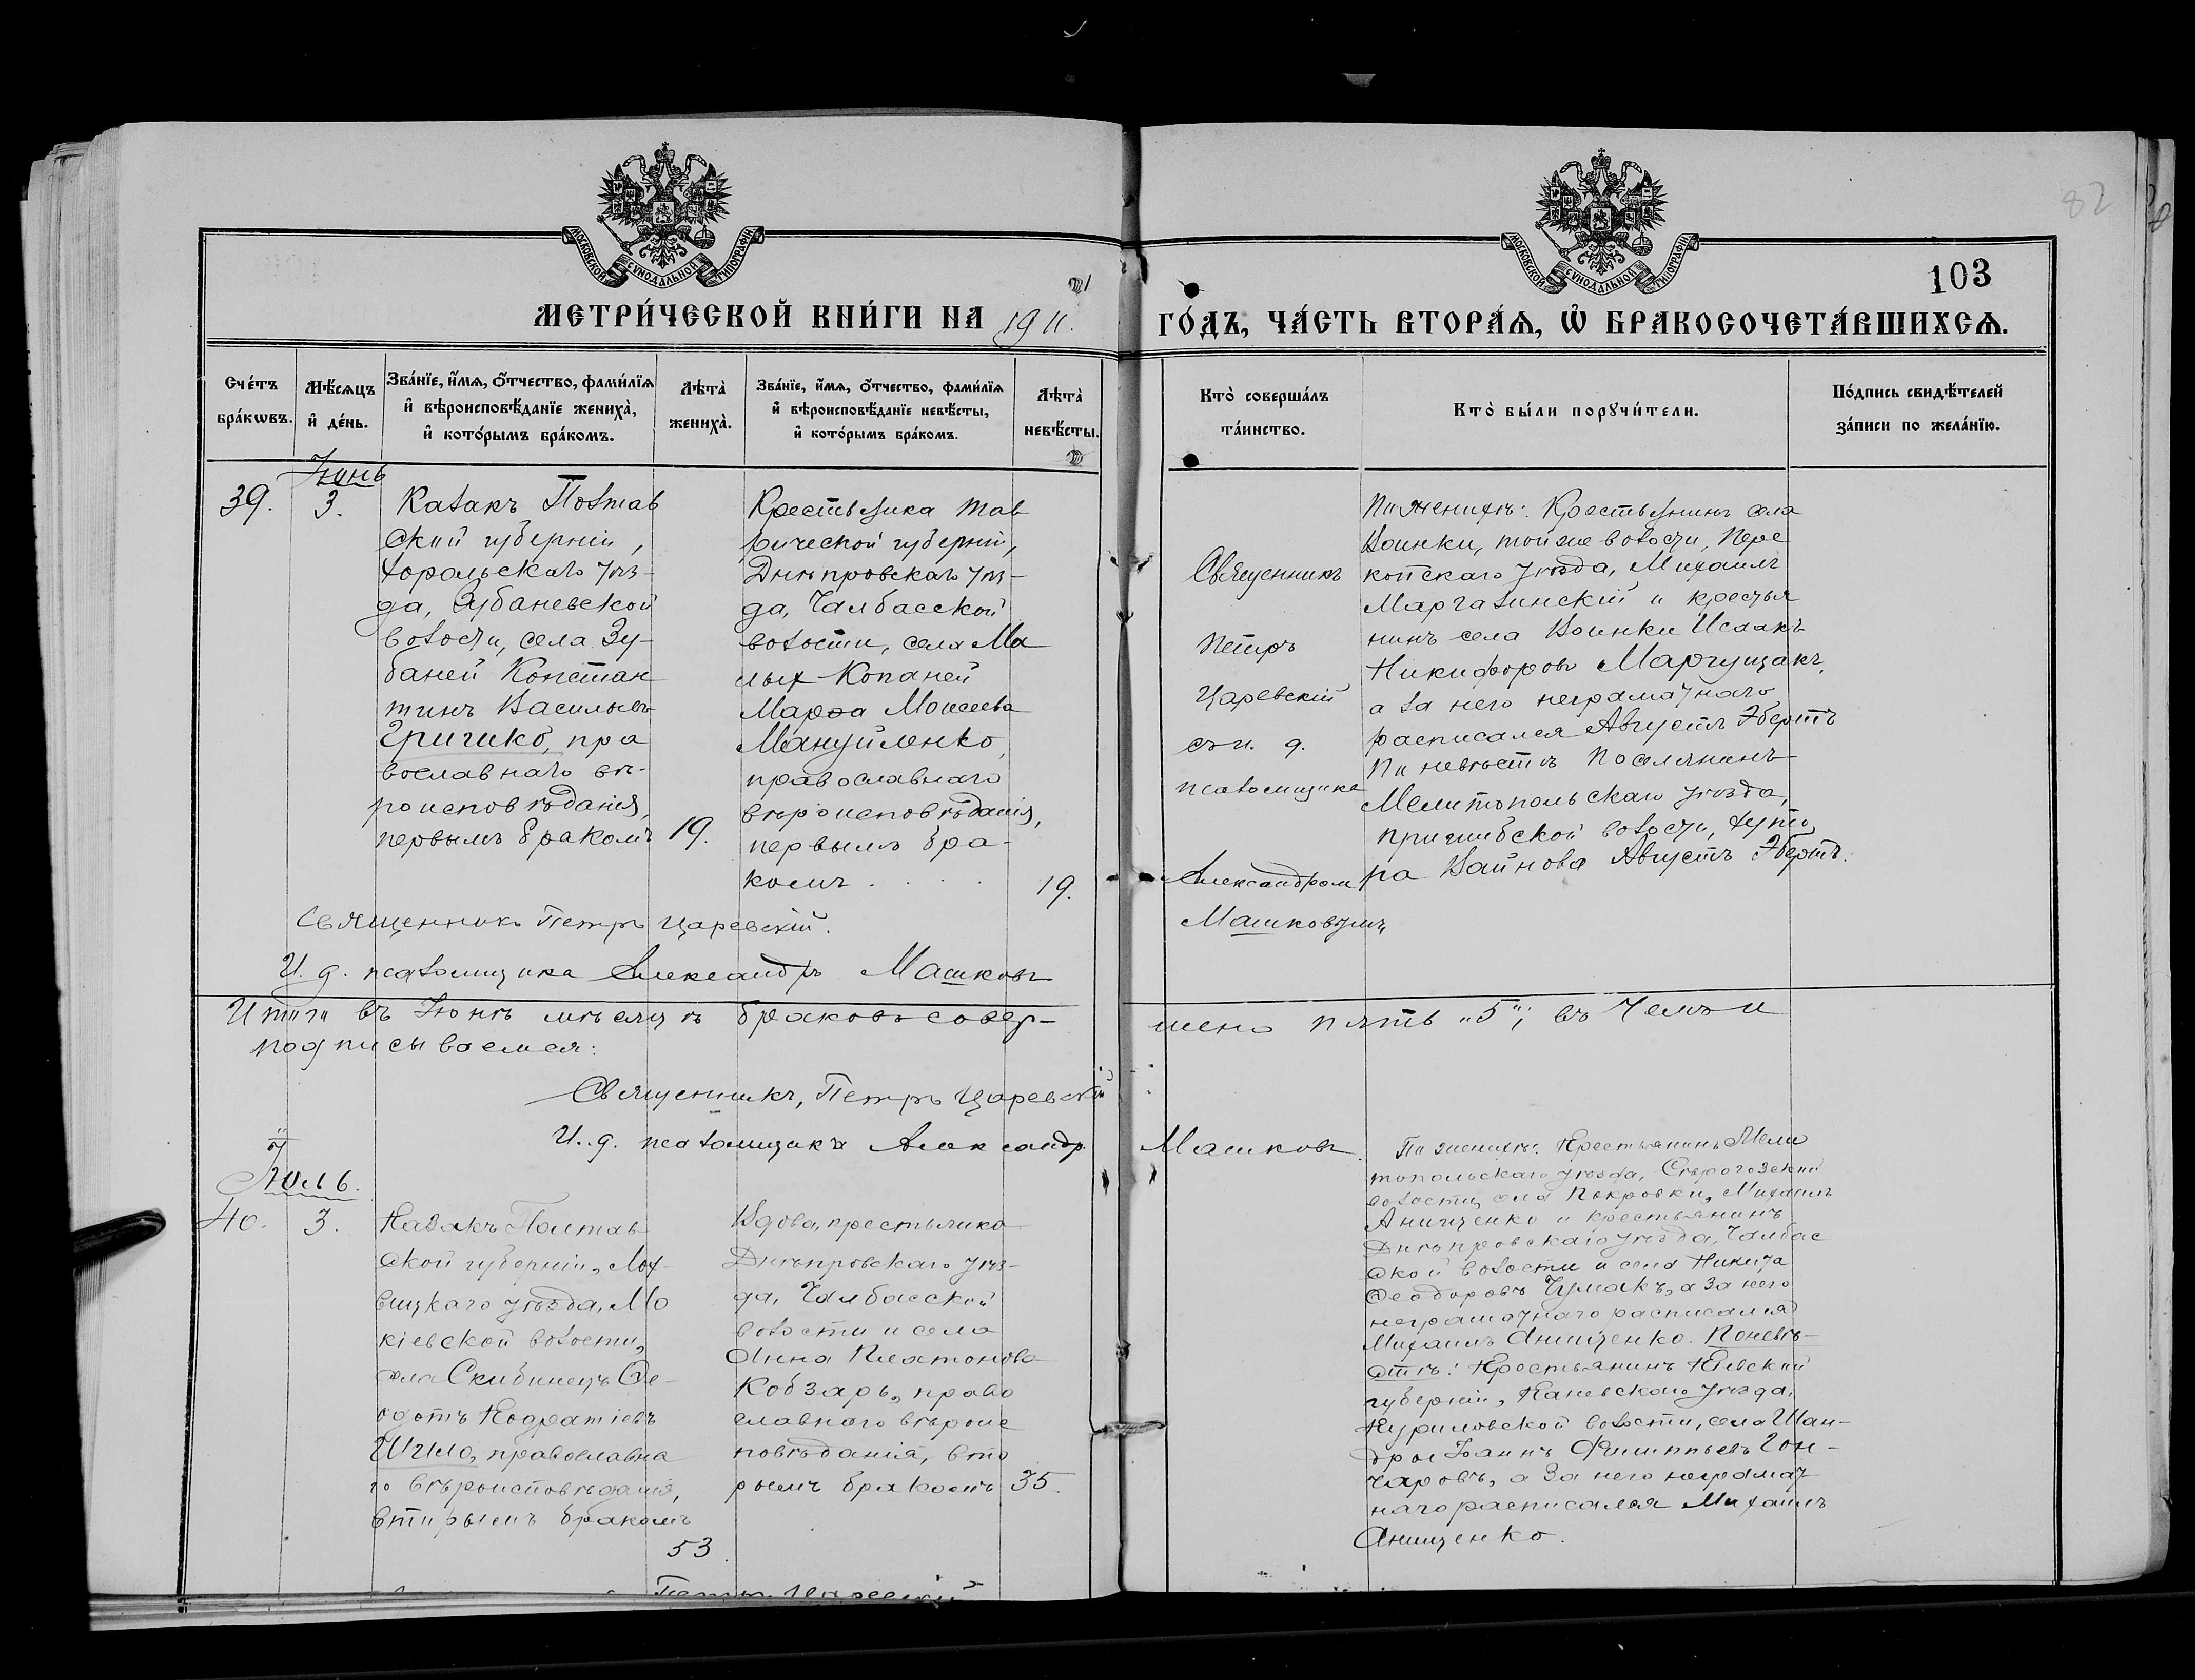 82
103
МОСКОВСКОЙ СѴНОДАЛЬНОЙ ТИПОГРАФІИ
МОСКОВСКОЙ СѴНОДАЛЬНОЙ ТИПОГРАФІИ
МЕТРИ́ЧЕСКОЙ КНИ́ГИ НА 1911.
ГО́ДЪ, ЧА́СТЬ ВТОРА́Ѧ, Ѽ БРАКОСОЧЕТА́ВШИХСѦ.
Сче́тъ бра́кѡвъ.
Мѣ́сѧцъ и҆ де́нь.
Зва́нїе, и҆́мѧ, ѻ҆́тчество, фами́лїѧ и҆ вѣроисповѣ́данїе жениха̀, и҆ кото́рымъ бра́комъ.
Лѣта̀ жениха̀.
Зва́нїе, и҆́мѧ, ѻ҆́тчество, фами́лїѧ и҆ вѣроисповѣ́данїе невѣ́сты, и҆ кото́рымъ бра́комъ.
Лѣта̀ невѣ́сты.
Кто̀ соверша́лъ та́инство.
Кто̀ бы́ли порꙋчи́тели.
По́дпись свидѣ́телей за́писи по жела́нїю.
Іюнь
39.
3.
Казакъ Полтав
ской губерніи,
Хорольскаго уѣз-
да, Зубаневской
волости, села Зу-
баней Констан
тинъ Васильевъ
Гричико, пра
вославнаго вѣ-
роисповѣданія,
первымъ бракомъ
19.
Крестьянка Тав
рической губерніи,
Днѣпровскаго уѣз-
да, Чалбасской
волости, села Ма
лыхъ Копаней
Марѳа Моисеева
Мануйленко,
православнаго
вѣроисповѣданія,
первымъ бра-
комъ . . . .
19.
Священникъ
Петръ
Царевскій
съ и. д.
псаломщика
Александромъ
Машковымъ
По женихѣ: Крестьянинъ села
Воинки, той же волости, Пере
копскаго уѣзда, Михаилъ
Маргалинскій и крестья
нинъ села Воинки Исаакъ
Никифоровъ Маргущакъ,
а за него неграмотнаго
расписался Августъ Эбертъ
По невѣстѣ поселянинъ
Мелитопольскаго уѣзда,
Пришибской волости, хуто
ра Вайнова Августъ Эбертъ.
Священникъ Петръ Царевскій.
И. д. псаломщика Александръ Машковъ
Итого въ Іюнѣ мѣсяцѣ браковъ совер-
шено пять „5“; въ чемъ и
подписываемся:
Священникъ, Петръ Царевскій
И. д. псаломщика Александръ
Машковъ.
Іюль.
40.
3.
Казакъ Полтав
ской губерніи, Лох
вицкаго уѣзда, Мо
кіевской волости,
села Скибинецъ Ѳе-
дотъ Кодратіевъ
Шило, православна
го вѣроисповѣданія,
вторымъ бракомъ
53.
Вдова, крестьянка
Днѣпровскаго уѣз-
да, Чалбасской
волости и села
Анна Платонова
Кобзарь, право
славнаго вѣроис
повѣданія, вто
рымъ бракомъ
35.
По женихѣ: Крестьянинъ Мели
топольскаго уѣзда, Сѣрогозской
волости, села Покровки, Михаилъ
Анищенко и крестьянинъ
Днѣпровскаго уѣзда, Чалбас
ской волости и села Никита
Ѳеодоровъ Чумакъ, а за него
неграмотнаго расписался
Михаилъ Анищенко. По невѣ-
стѣ: Крестьянинъ Кіевской
губерніи, Каневскаго уѣзда,
Куриловской волости, села Шан-
дры Іоаннъ Филипповъ Гон-
чаровъ, а за него неграмот
наго расписался Михаилъ
Анищенко.
Петръ Царевскій